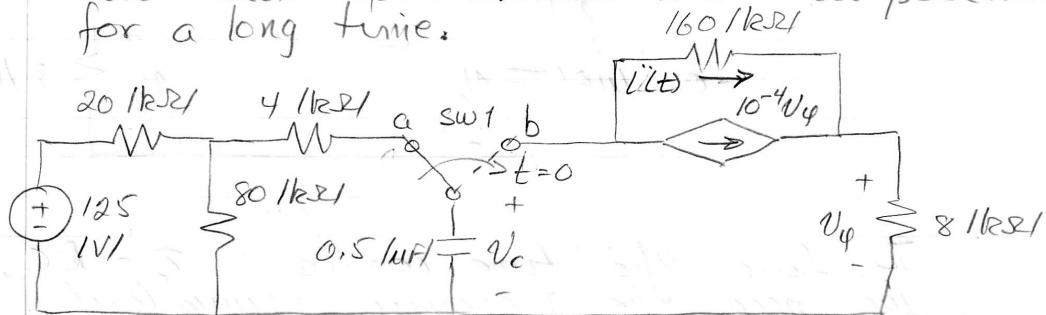 for a long time.
160 /kΩ/
i(t)
10⁻⁴vφ
20 /kΩ/
4 /kΩ/
a
SW1
b
t=0
+
−
125
/V/
80 /kΩ/
0.5 /μF/
+
vc
−
+
vφ
−
8 /kΩ/